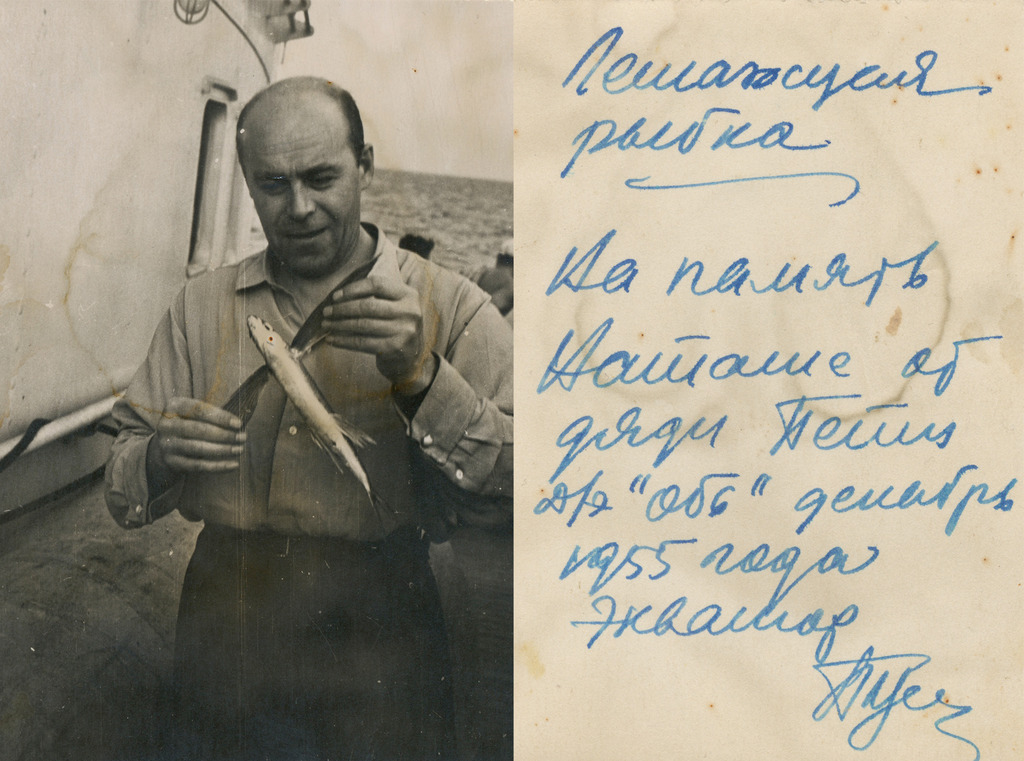 Летающая
рыбка
На память
Наташе от
дяди Пети
д/э "Обь" декабрь
1955 года
Экватор